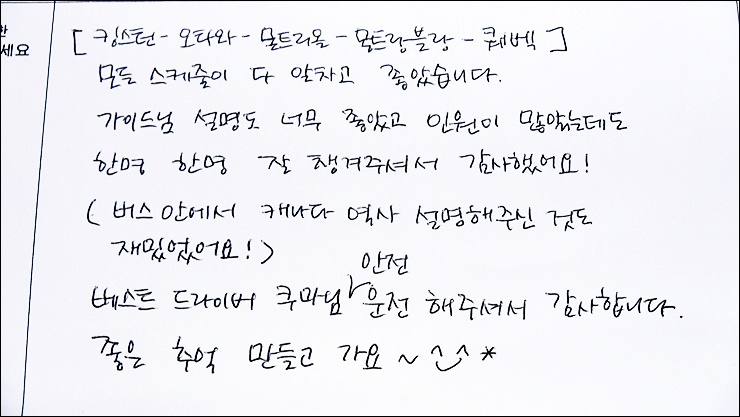 한
세요
[ 킹스턴 - 오타와 - 몬트리올 - 몽트랑블랑 - 퀘벡 ]
모든 스케줄이 다 알차고 좋았습니다.
가이드님 설명도 너무 좋았고 인원이 많았는데도
한명 한명 잘 챙겨주셔서 감사했어요!
( 버스 안에서 캐나다 역사 설명해주신 것도
재밌었어요! )
베스트 드라이버 쿠마님 안전 운전 해주셔서 감사합니다.
좋은 추억 만들고 가요 ~ ^^ *